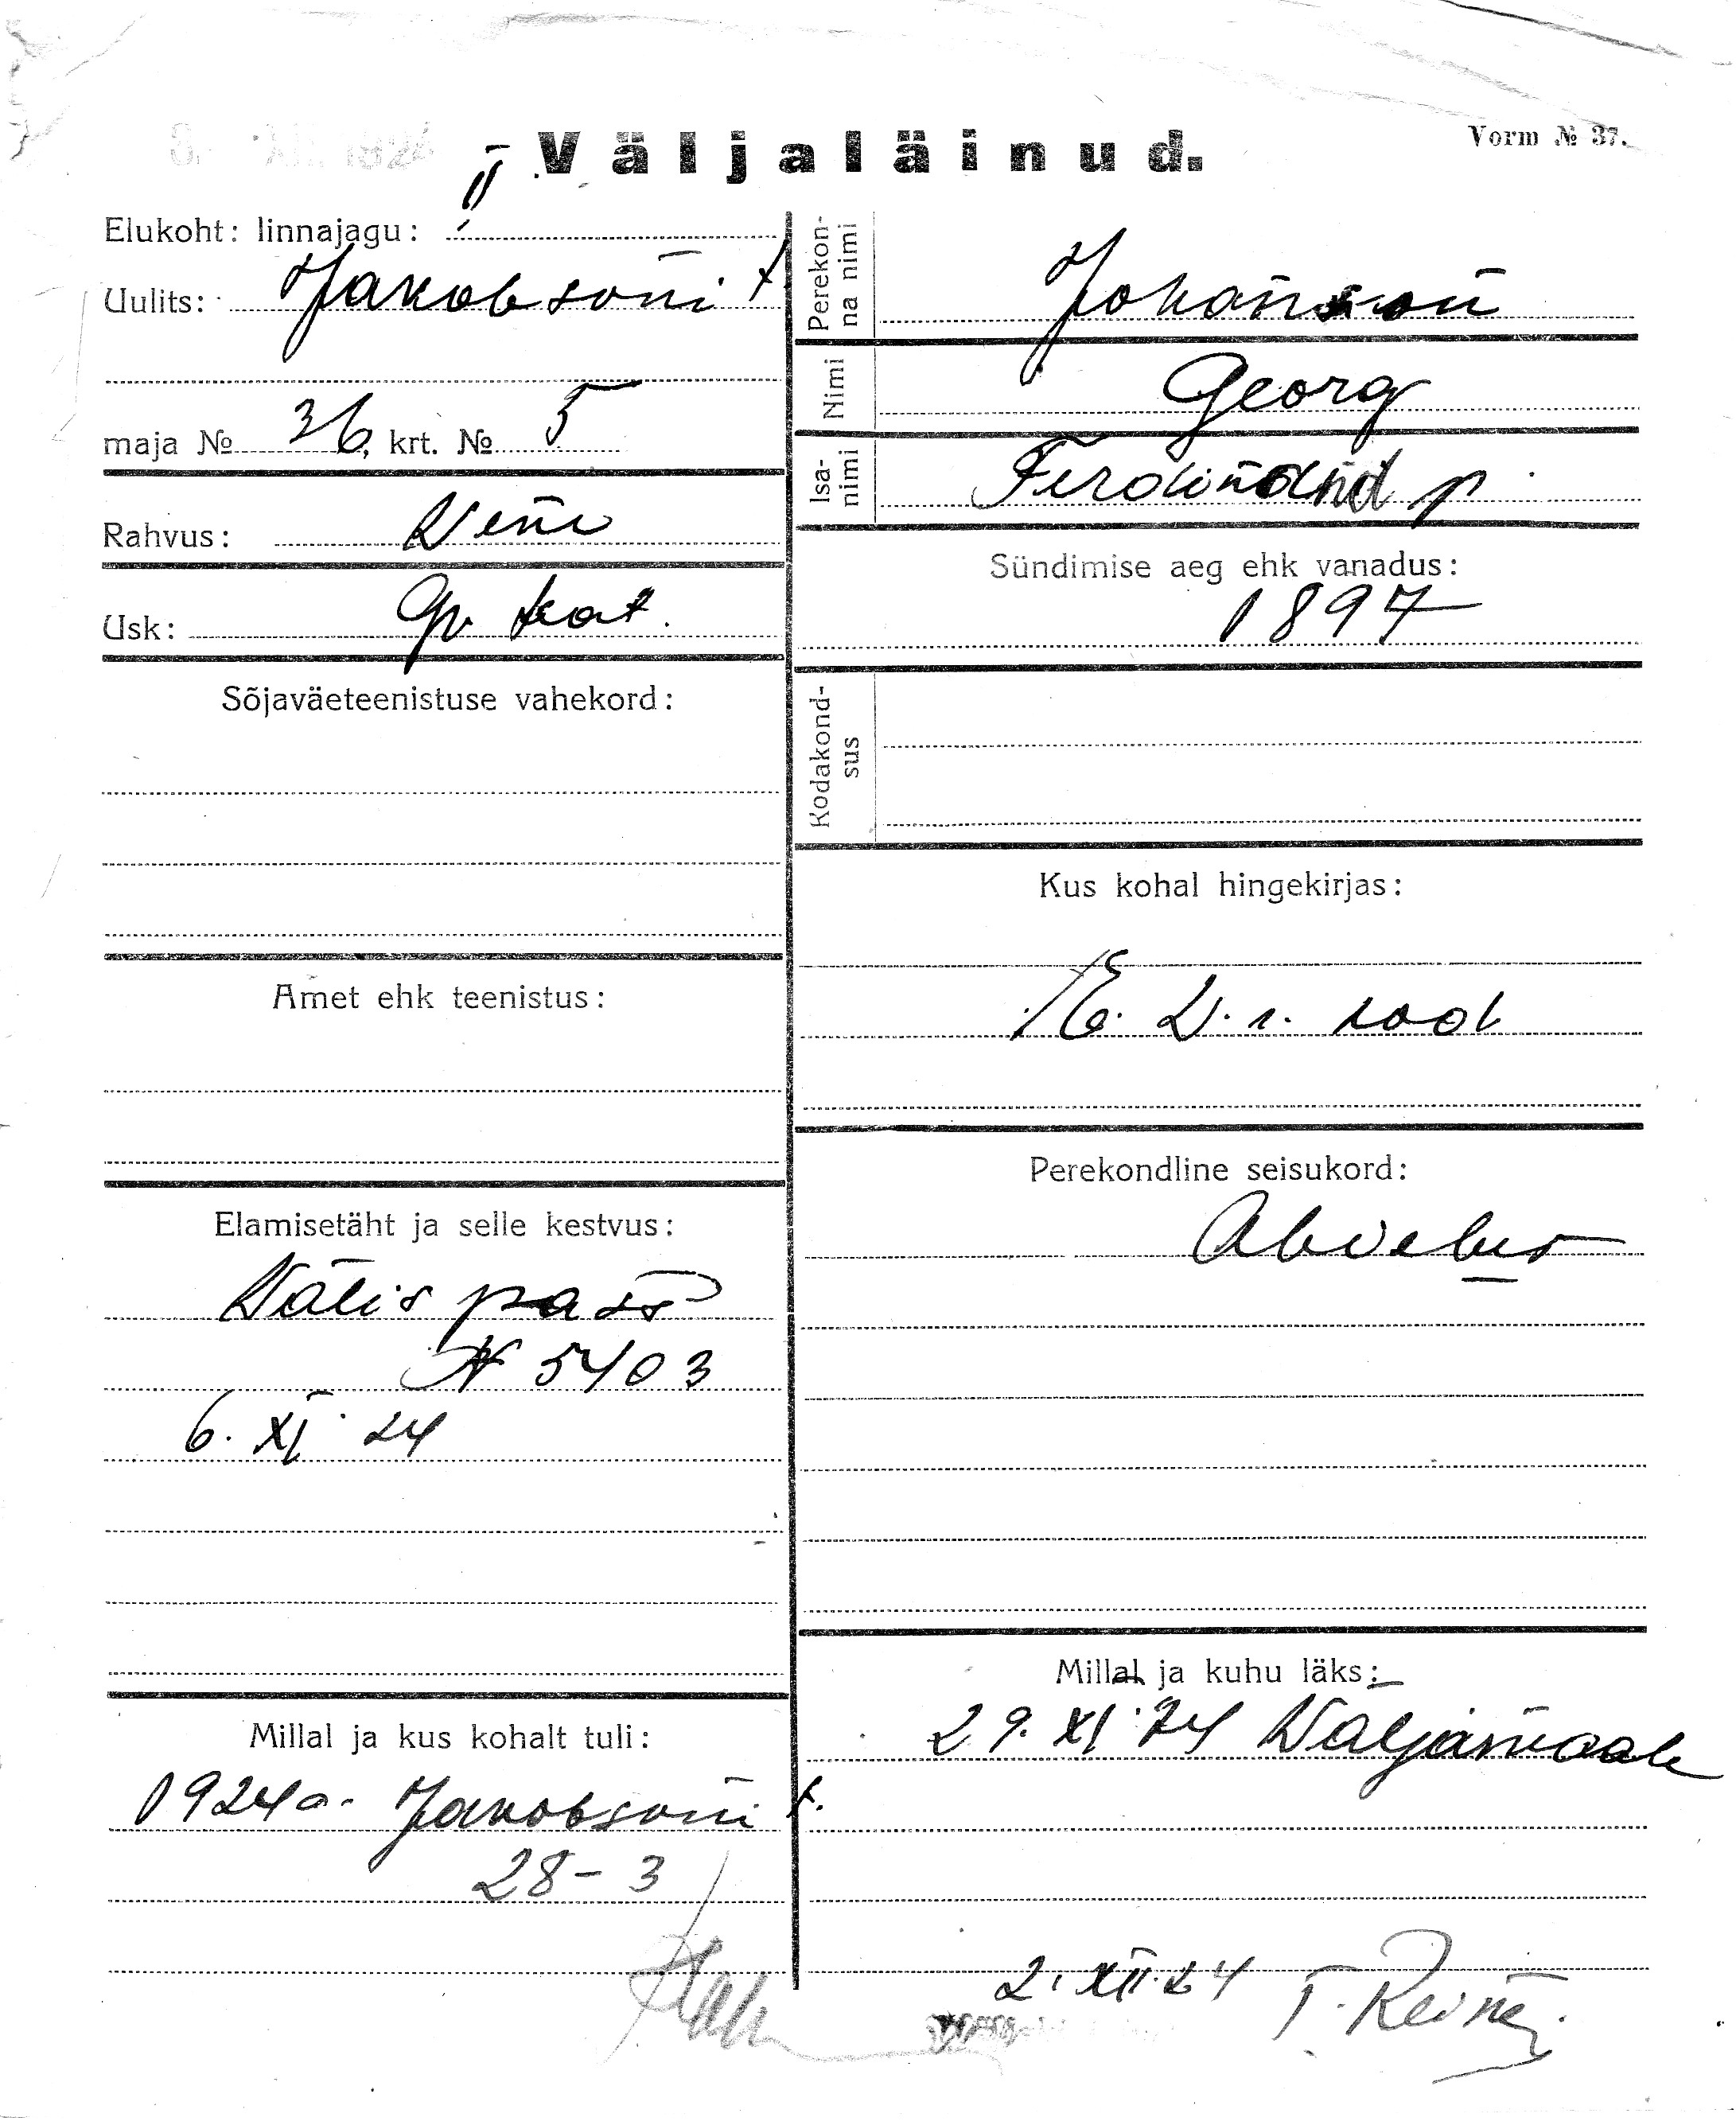 Väljaläinud.
Vorm № 37.
Elukoht: linnajagu: II
Uulits: Jakobsoni t.
maja № 36, krt. № 5
Rahvus: Vene
Usk: Gr. kat.
Sõjaväeteenistuse vahekord:
Amet ehk teenistus:
Elamisetäht ja selle kestvus:
Välis pass
N 5403
6. XI 24
Millal ja kus kohalt tuli:
1924 a. Jakobsoni t.
28 - 3
Perekon-
na nimi
Johanson
Nimi Georg
Isa-
nimi
Ferdinand p.
Sündimise aeg ehk vanadus:
1897
Kodakond-
sus
Kus kohal hingekirjas:
E. V. r. kod
Perekondline seisukord:
Abielus
Millal ja kuhu läks:
29. XI 24 Väljamaale
2. XII. 24